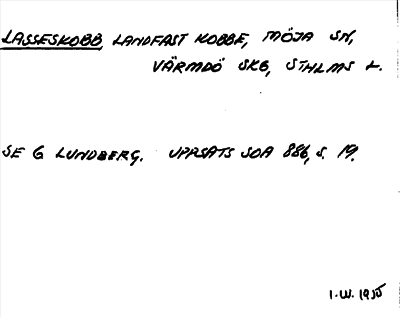 LASSESKOBB LANDFAST KOBBE, MÖJA SN,
VÄRMDÖ SKG, STHLMS L.
SE G LUNDBERG. UPPSATS SOA 886, S. 19.
I.W. 1950